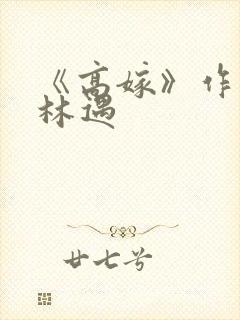 《高嫁》作
林遇
廿七兮